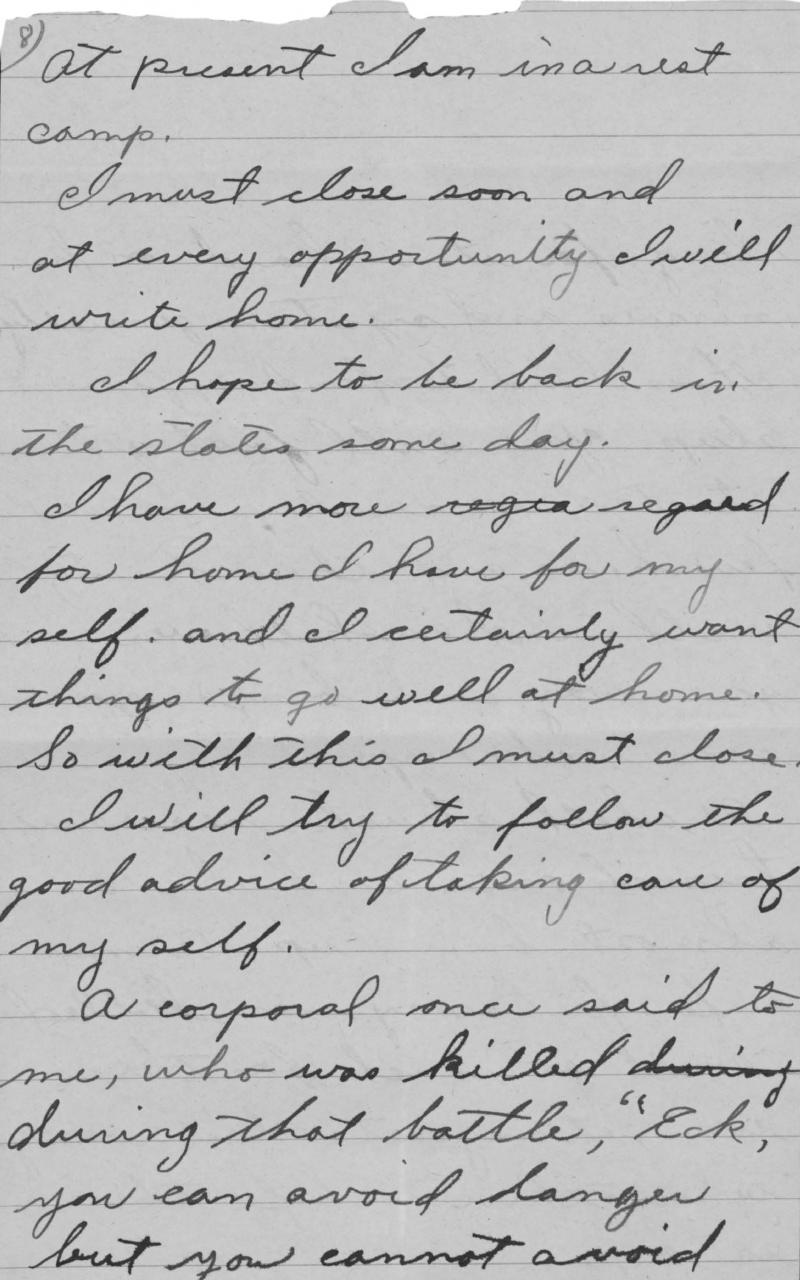 8)
At present I am in a rest
camp.
I must close soon and
at every opportunity I will
write home.
I hope to be back in
the states some day.
I have more regea regard
for home I have for my
self. and I certainly want
things to go well at home.
So with this I must close.
I will try to follow the
good advice of taking care of
my self.
A corporal once said to
me, who was killed during
during that battle, "Eck,
you can avoid danger
but you cannot avoid